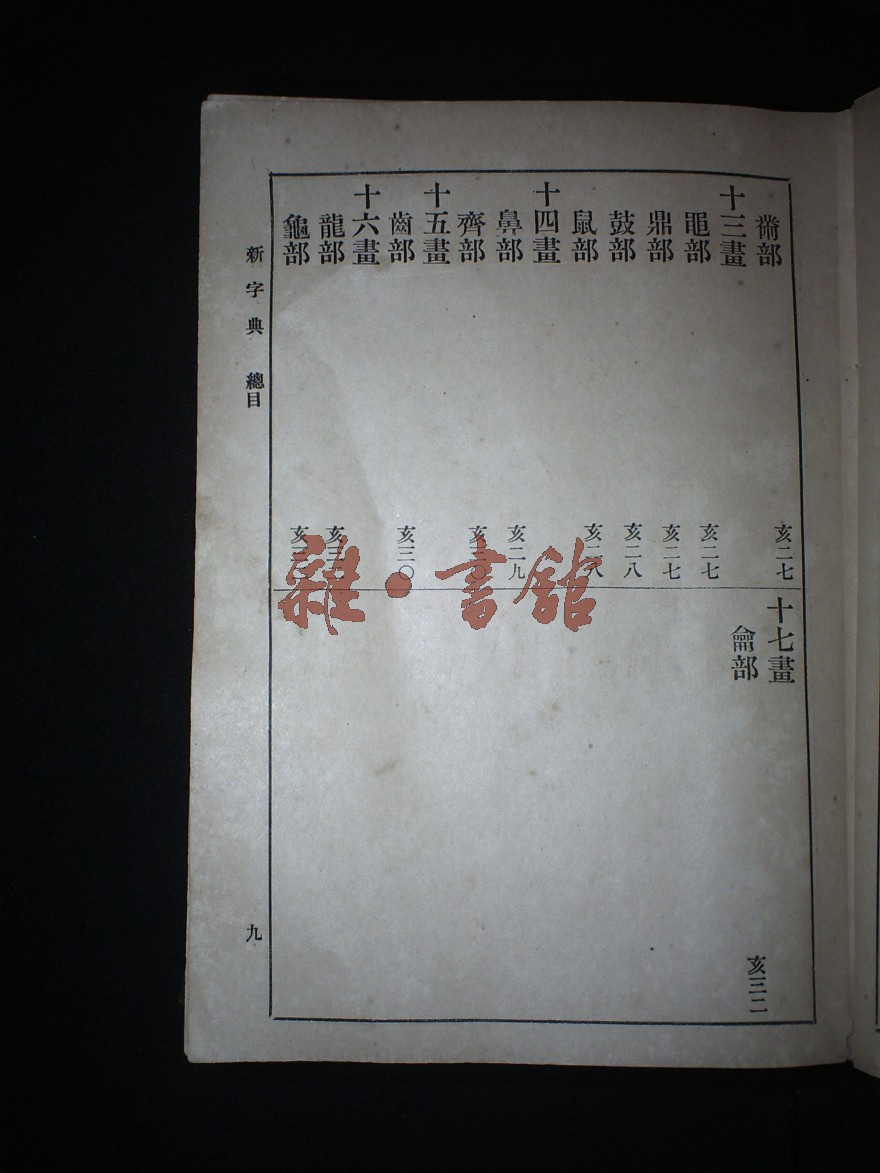 黹部 亥二七
十三畫
黽部 亥二七
鼎部 亥二七
鼓部 亥二八
鼠部 亥二八
十四畫
鼻部 亥二九
齊部 亥三〇
十五畫
齒部 亥三〇
十六畫
龍部 亥三
龜部 亥三
十七畫
龠部 亥三二
新字典 總目
九
雜·書館